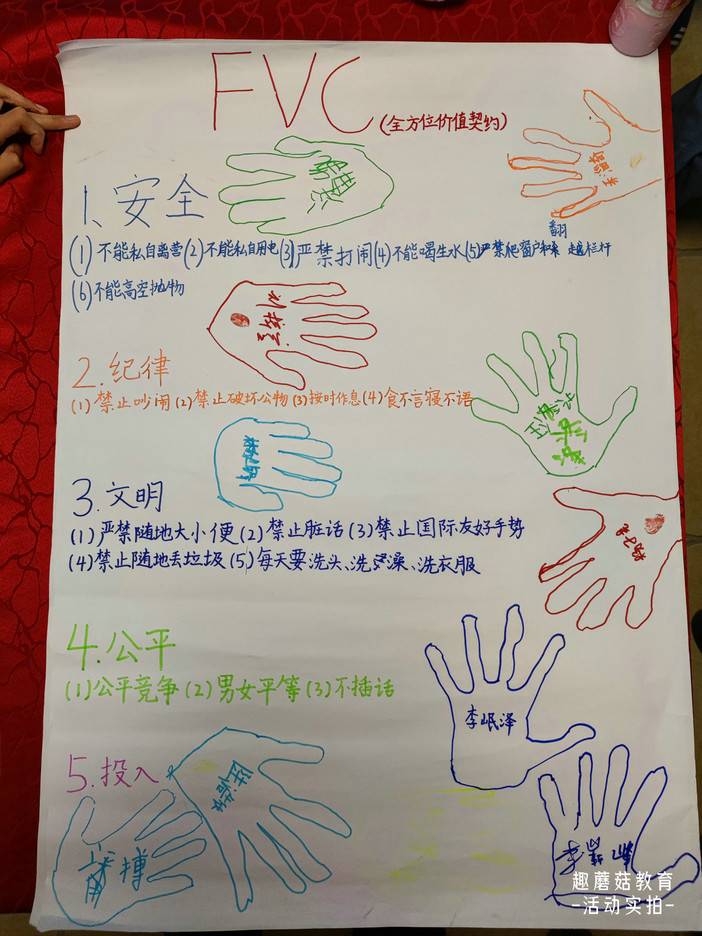 FVC(全方位价值契约)
1、安全
(1)不能私自离营(2)不能私自用电(3)严禁打闹(4)不能喝生水(5)严禁爬窗户和翻越栏杆
(6)不能高空抛物
2.纪律
(1)禁止吵闹(2)禁止破坏公物(3)按时作息(4)食不言寝不语
3.文明
(1)严禁随地大小便(2)禁止脏话(3)禁止国际友好手势
(4)禁止随地丢垃圾(5)每天要洗头、洗澡、洗衣服
4.公平
(1)公平竞争(2)男女平等(3)不插话
李岷泽
5.投入
趣蘑菇教育
-活动实拍-